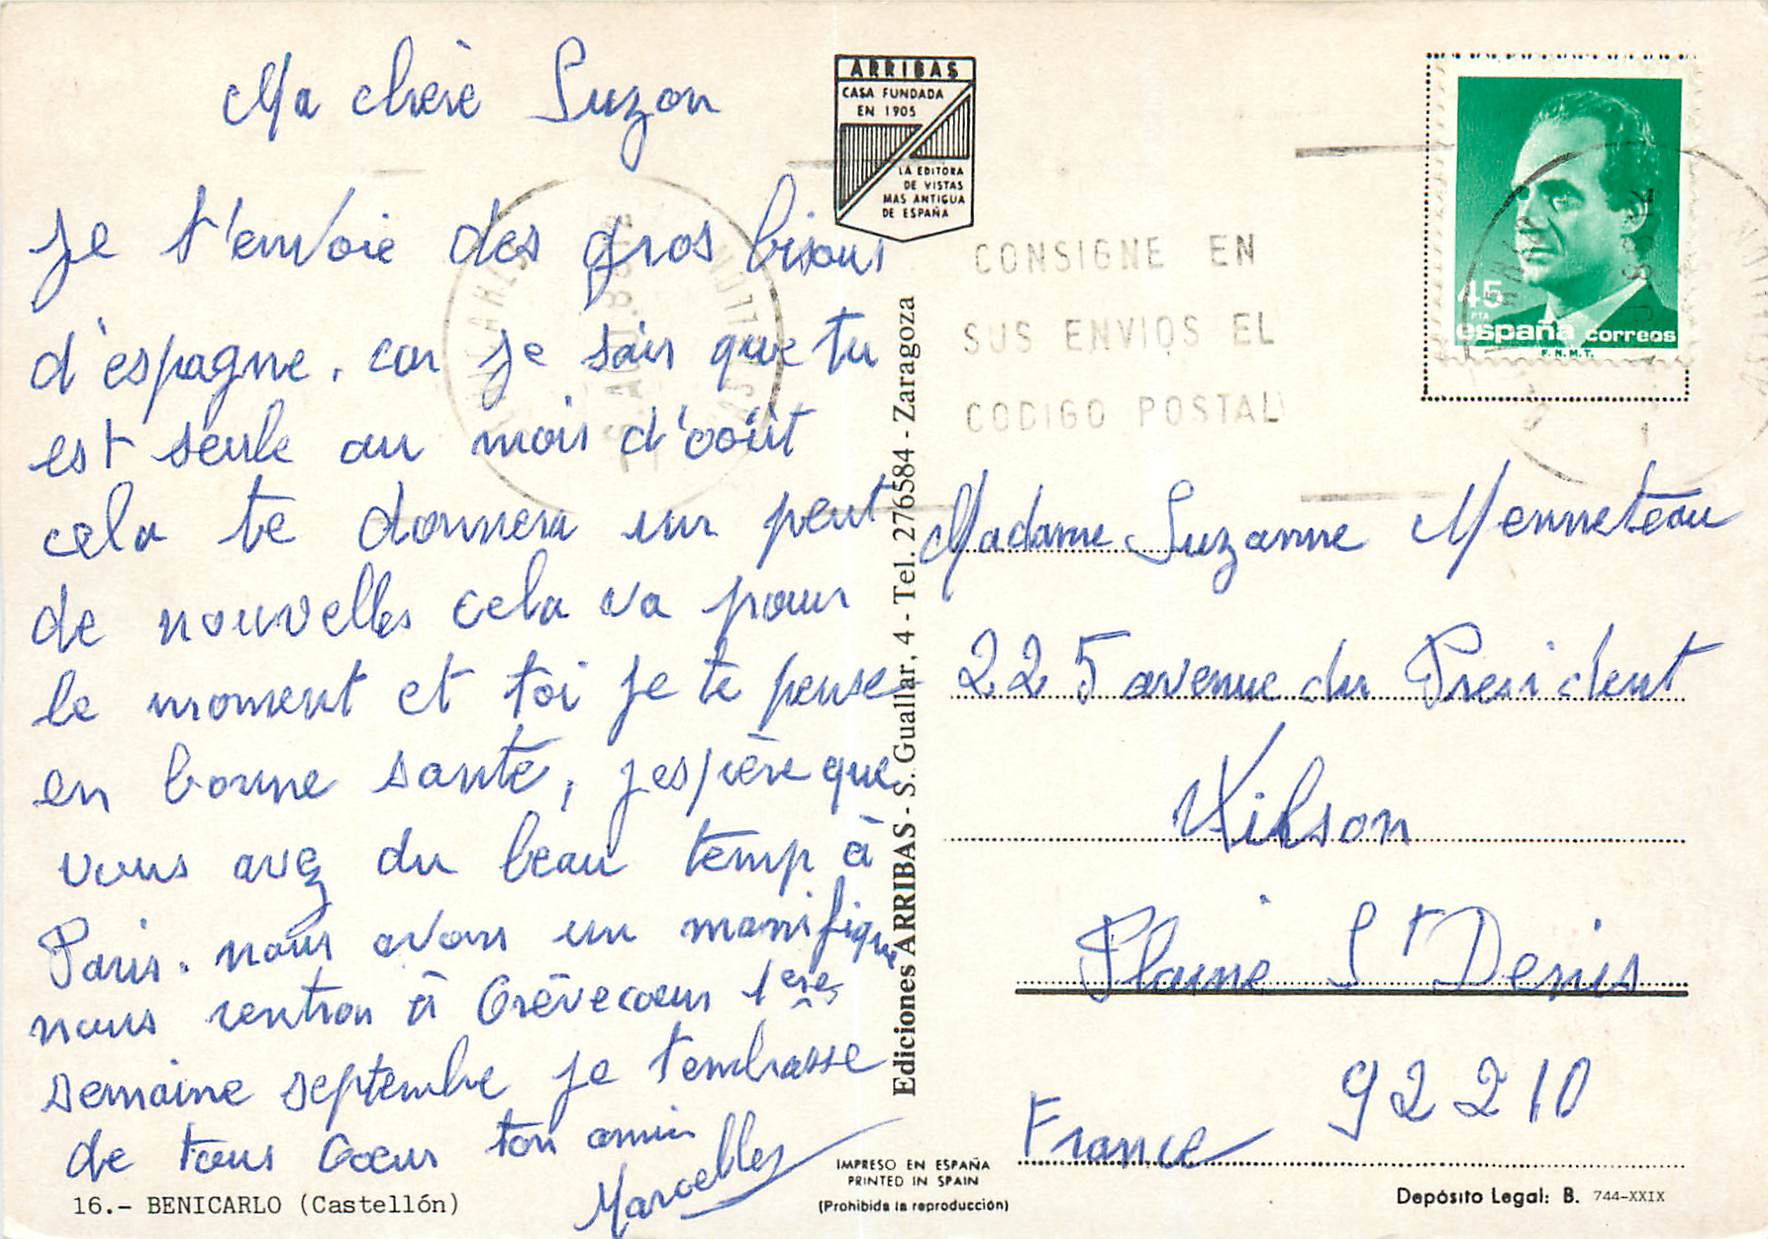 Ma chère Suzon
Je t'envoie des gros bisous
d'espagne, car je sais que tu
est seule au mois d'oôut
cela te donnera un peut
de nouvelles cela va pour
le moment et toi je te pense
en bonne santé, j'espière que
vous avez du beau temp à
Paris. nous avons un manifique
nous rentron à Crèvecoeur 1ere
semaine septembre je t'embrasse
de tous coeur ton amie
Marcelles
16.- BENICARLO (Castellón)
ARRIBAS
CASA FUNDADA
EN 1905
LA EDITORA
DE VISTAS
MAS ANTIGUA
DE ESPAÑA
Ediciones ARRIBAS - S. Guallar, 4 - Tel. 276584 - Zaragoza
IMPRESO EN ESPAÑA
PRINTED IN SPAIN
(Prohibida la reproducción)
CONSIGNE EN
SUS ENVIOS EL
CODIGO POSTAL
45
PTA
españa correos
F.N.M.T.
Madame Suzanne Menneteau
225 avenue du President
Wilson
Plaine St Denis
92210
France
Depósito Legal: B. 744-XXIX